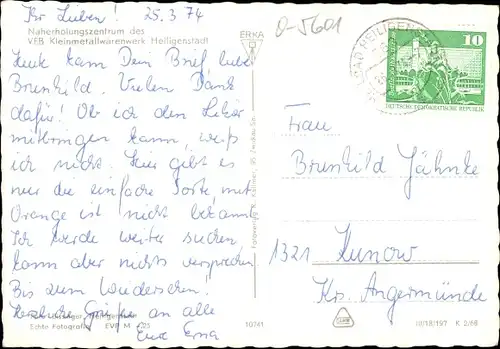 Ihr Lieben! 25.3.74
Naherholungszentrum des
VEB Kleinmetallwarenwerk Heiligenstadt
ERKA
Heute kam Dein Brief liebe
Brunhild. Vielen Dank
dafür! Ob ich den Likör
mitbringen kann, weiß
ich nicht. Hier gibt es
nur die einfache Sorte, mit
Orange ist nicht bekannt
Ich werde weiter suchen
kann aber nichts versprechen.
Bis zum Wiedersehen!
Herzliche Grüße an alle
Eure Erna
Echte Fotografie EVP M
10741
O-5601
BAD HEILIGENSTADT
10
DEUTSCHE DEMOKRATISCHE REPUBLIK
Frau
Brunhild Jähnke
1321 Kunow
Krs. Angermünde
III/18/197 K 2/69